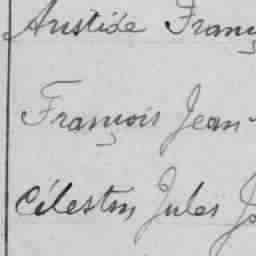 Aristide Franç
François Jean
Célestin Jules Jo